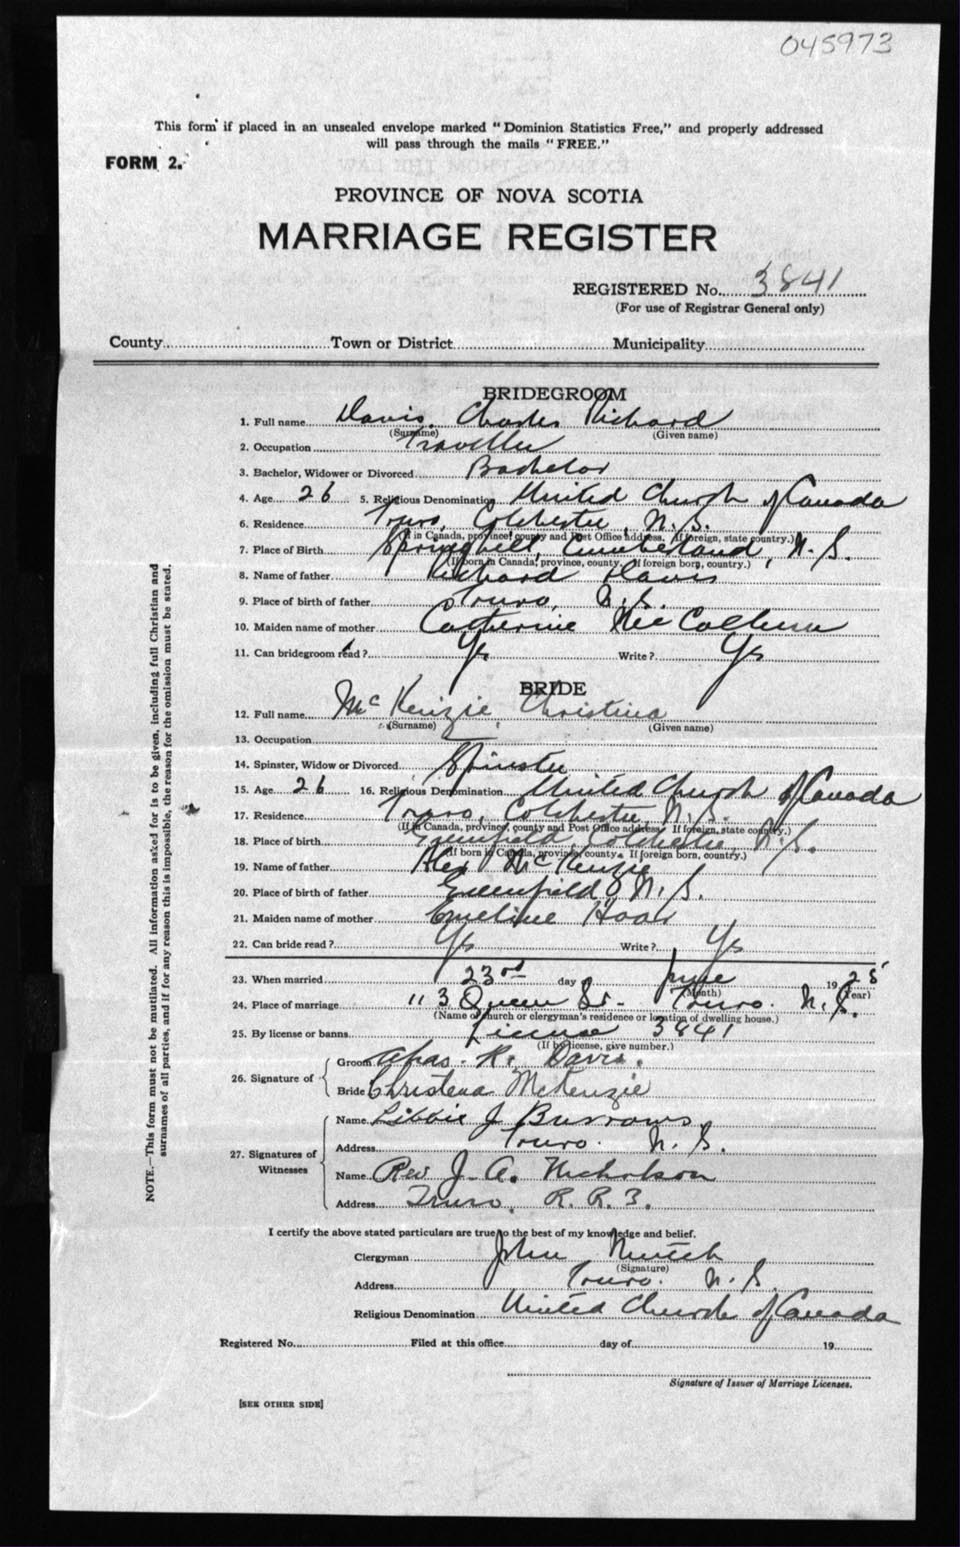 045973
This form if placed in an unsealed envelope marked "Dominion Statistics Free," and properly addressed
will pass through the mails "FREE."
FORM 2.
PROVINCE OF NOVA SCOTIA
MARRIAGE REGISTER
REGISTERED No. 3841
(For use of Registrar General only)
County Town or District Municipality
BRIDEGROOM
1. Full name Davis, Charles Richard
(Surname) (Given name)
2. Occupation Traveller
3. Bachelor, Widower or Divorced Bachelor
4. Age 26 5. Religious Denomination United Church of Canada
6. Residence Truro, Colchester, N.S.
(If in Canada, province, county and Post Office address. If foreign, state country.)
7. Place of Birth Springhill, Cumberland, N.S.
(If born in Canada, province, county. If foreign born, country.)
8. Name of father Richard Davis
9. Place of birth of father Truro, N.S.
10. Maiden name of mother Catherine
11. Can bridegroom read? Yes Write? Yes
BRIDE
12. Full name McKenzie Christina
(Surname) (Given name)
13. Occupation
14. Spinster, Widow or Divorced Spinster
15. Age 26 16. Religious Denomination United Church of Canada
17. Residence Truro, Colchester, N.S.
(If in Canada, province, county and Post Office address. If foreign, state country.)
18. Place of birth Greenfield, Colchester, N.S.
(If born in Canada, province, county. If foreign born, country.)
19. Name of father Alex McKenzie
20. Place of birth of father Greenfield N.S.
21. Maiden name of mother Emeline
22. Can bride read? Yes Write? Yes
23. When married 23rd day June 1925
(Month) (Year)
24. Place of marriage Queen St. Truro. N.S.
(Name of church or clergyman's residence or location of dwelling house.)
25. By license or banns License 3841
(If by license, give number.)
26. Signature of
Groom Chas. R. Davis.
Bride Christena McKenzie
27. Signatures of Witnesses
Name Libbie J Burrows
Address Truro. N.S.
Name Rev J. A. Nicholson
Address Truro, R.R.3.
I certify the above stated particulars are true to the best of my knowledge and belief.
Clergyman John Mutch
(Signature)
Address Truro. N.S.
Religious Denomination United Church of Canada
Registered No. Filed at this office day of 19
Signature of Issuer of Marriage Licenses.
[SEE OTHER SIDE]
NOTE.—This form must not be mutilated. All information asked for is to be given, including full Christian and
surnames of all parties, and if for any reason this is impossible, the reason for the omission must be stated.